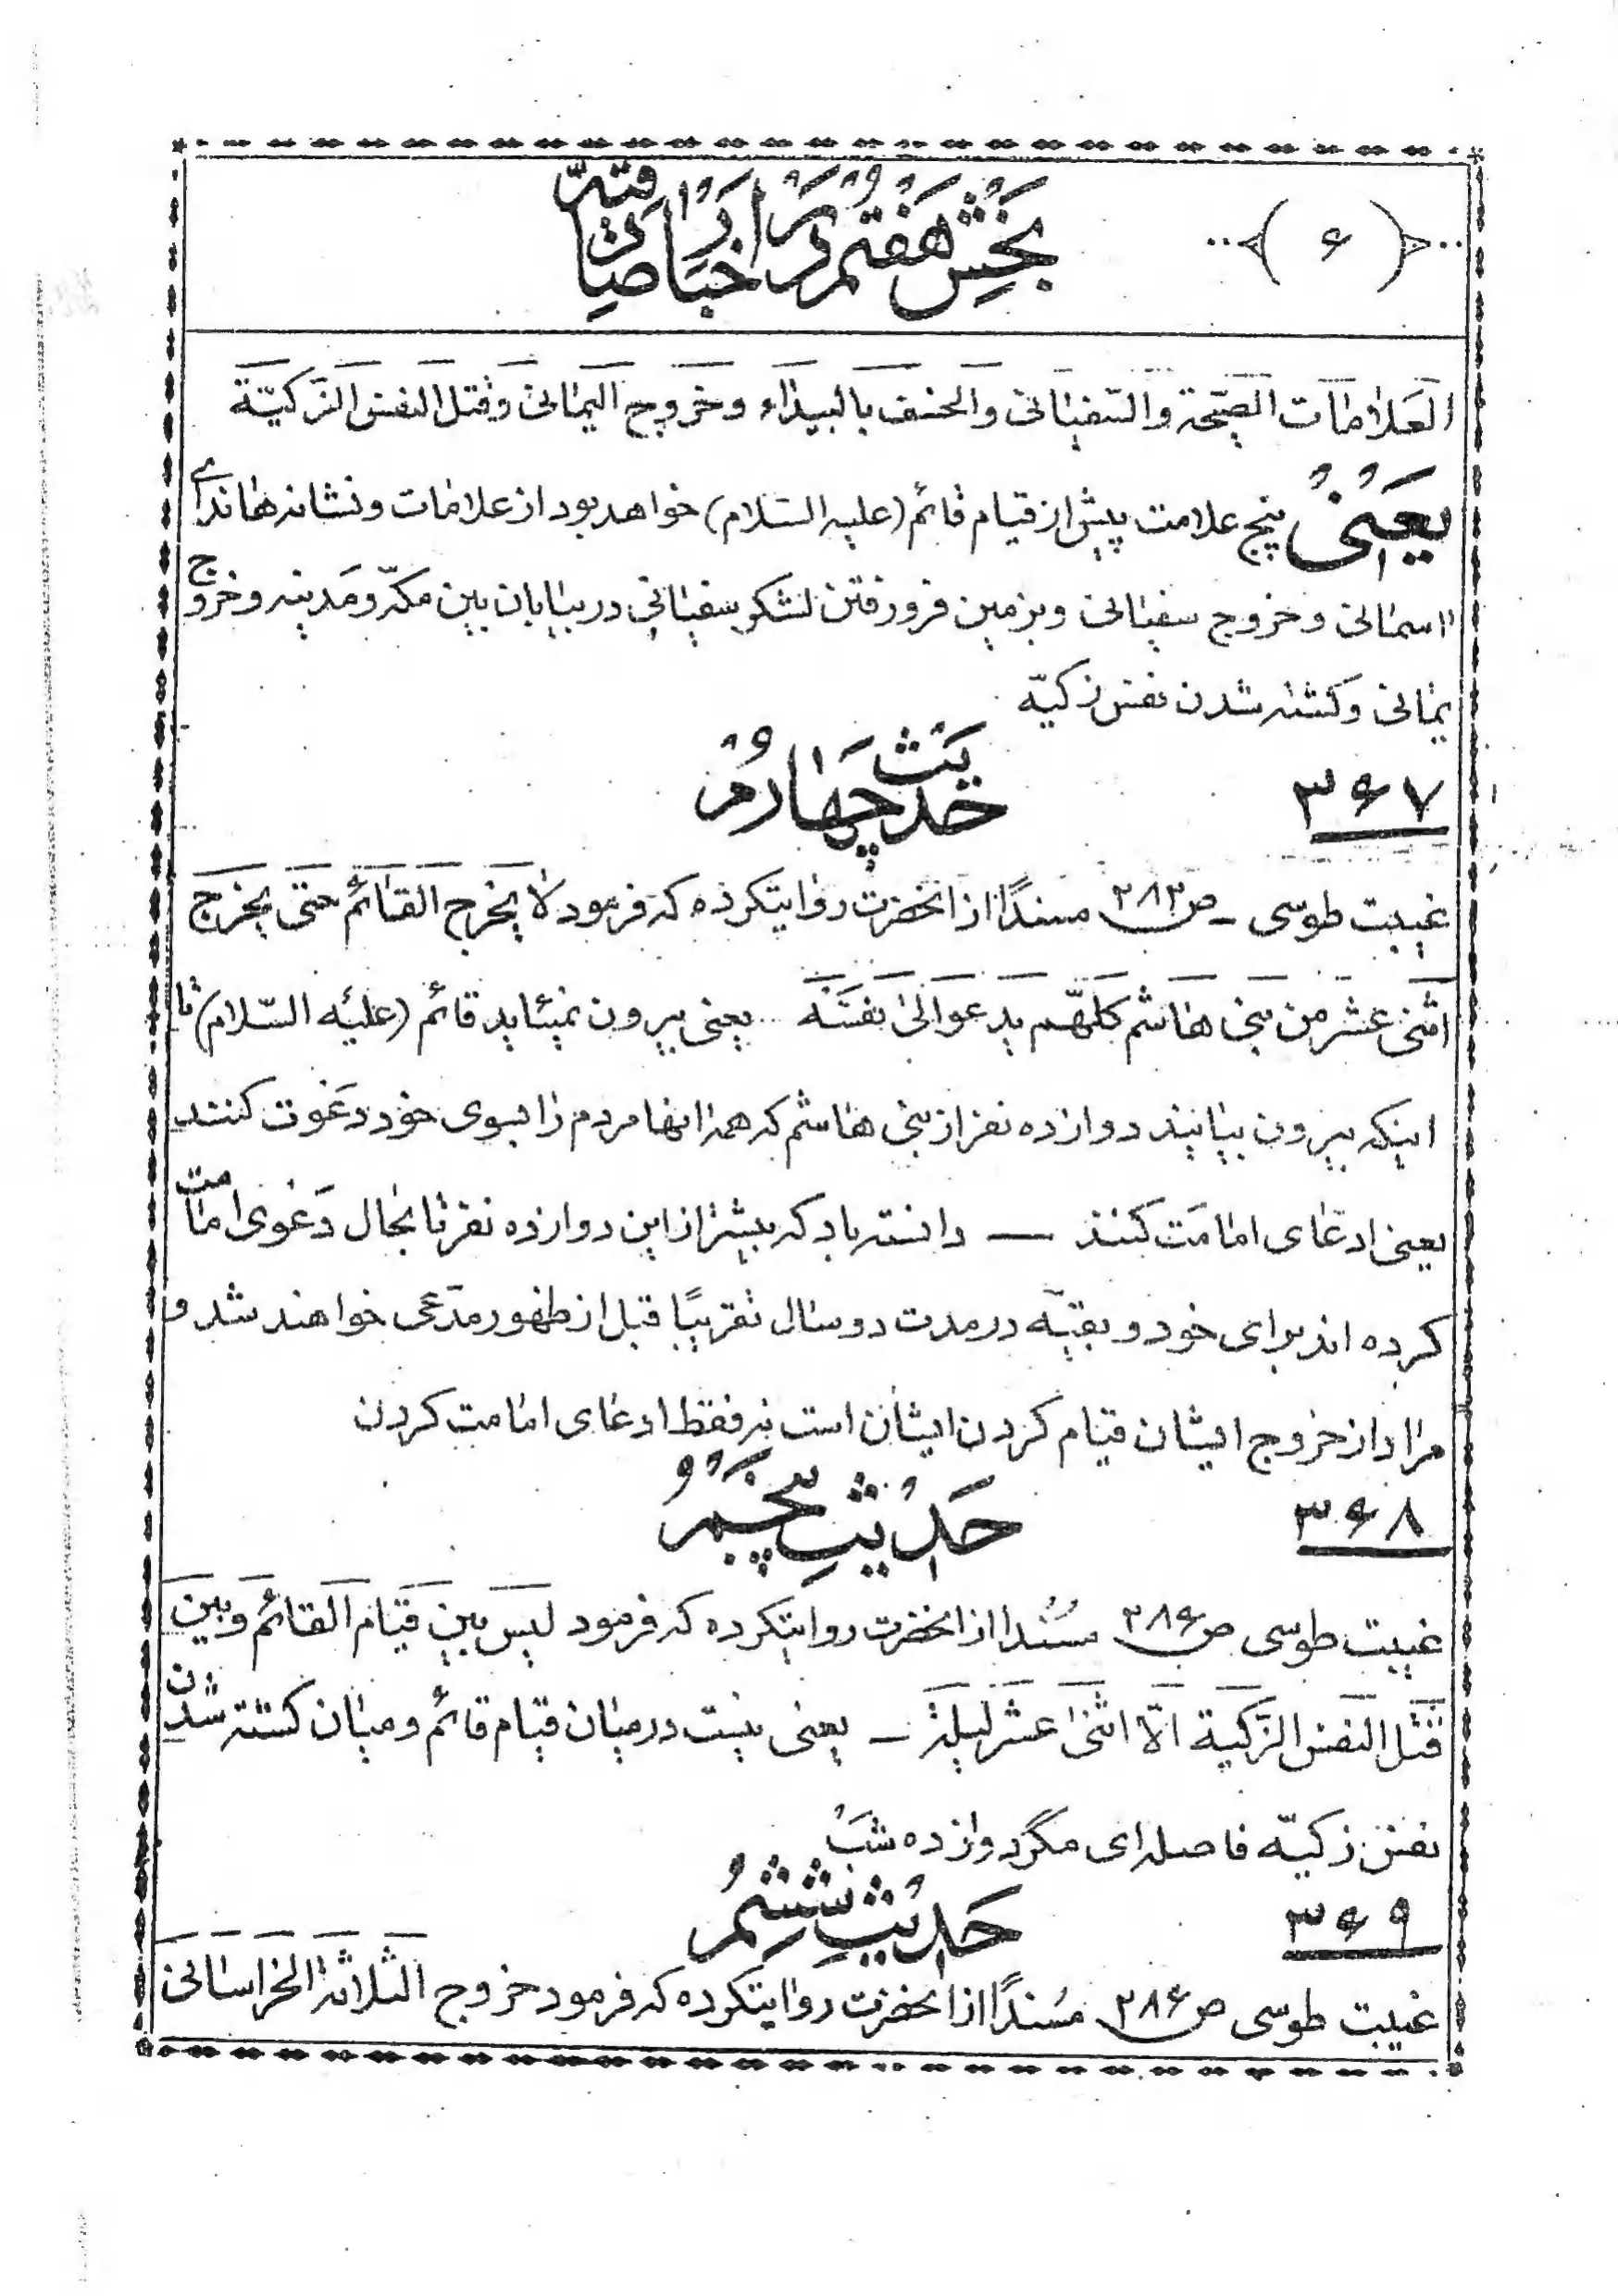 (۶) بخش هفتم در اخبار صادقیّه
العلامات الصّیحة والسّفیانی والخسف بالبیداء وخروج الیمانی وقتل النفس الزّکیّة
یعنی پنج علامت پیش از قیام قائم (علیه السّلام) خواهد بود از علامات و نشانه‌ها ندای
اسمانی و خروج سفیانی و بزمین فرو رفتن لشکر سفیانی در بیابان بین مکّه و مدینه و خروج
یمانی و کشته شدن نفس زکیّه
۳۶۷ حدیث چهارم
غیبت طوسی - ص۲۸۲ مسنداً از انحضرت روایتکرده که فرمود لا یخرج القائم حتی یخرج
اثنی عشر من بنی هاشم کلهّم یدعوا الی نفسه یعنی بیرون نمیاید قائم (علیه السّلام) تا
اینکه بیرون بیایند دوازده نفر از بنی هاشم که همه انها مردم را بسوی خود دعوت کنند
یعنی ادعای امامت کنند — دانسته باد که بیشتر از این دوازده نفر تا بحال دعوی امامت
کرده اند برای خود و بقیّه در مدت دو سال تقریباً قبل از ظهور مدّعی خواهند شد و
مراد از خروج ایشان قیام کردن ایشان است نه فقط ادعای امامت کردن
۳۶۸ حدیث پنجم
غیبت طوسی ص۲۸۶ مسندا از انحضرت روایتکرده که فرمود لیس بین قیام القائم و بین
قتل النفس الزّکیة الّا اثنی عشر لیلة - یعنی نیست در میان قیام قائم و میان کشته شدن
نفس زکیّه فاصله ای مگر دوازده شب
۳۶۹ حدیث ششم
غیبت طوسی ص۲۸۶ مسنداً از انحضرت روایتکرده که فرمود خروج الثلاثة الخراسانی